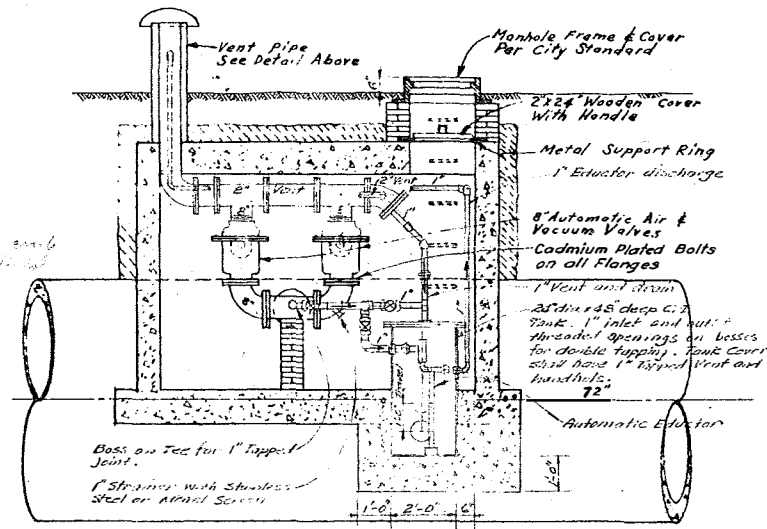 Vent Pipe
See Detail Above
Manhole Frame & Cover
Per City Standard
2"x24" Wooden Cover
With Handle
Metal Support Ring
1" Eductor discharge
8"
Vent
2" Vent
1"
8" Automatic Air &
Vacuum Valves
Cadmium Plated Bolts
on all Flanges
1" Vent and drain
deep C.I.
Tank. 1" inlet and outlet
threaded openings on bosses
for double tapping. Tank Cover
shall have 1" Tapped Vent and
handhole.
72"
Automatic Eductor
8"
Boss on Tee for 1" Tapped
Joint.
1" Strainer with Stainless
Steel or Monel Screen
1'-0"
2'-0"
6"
1'-0"